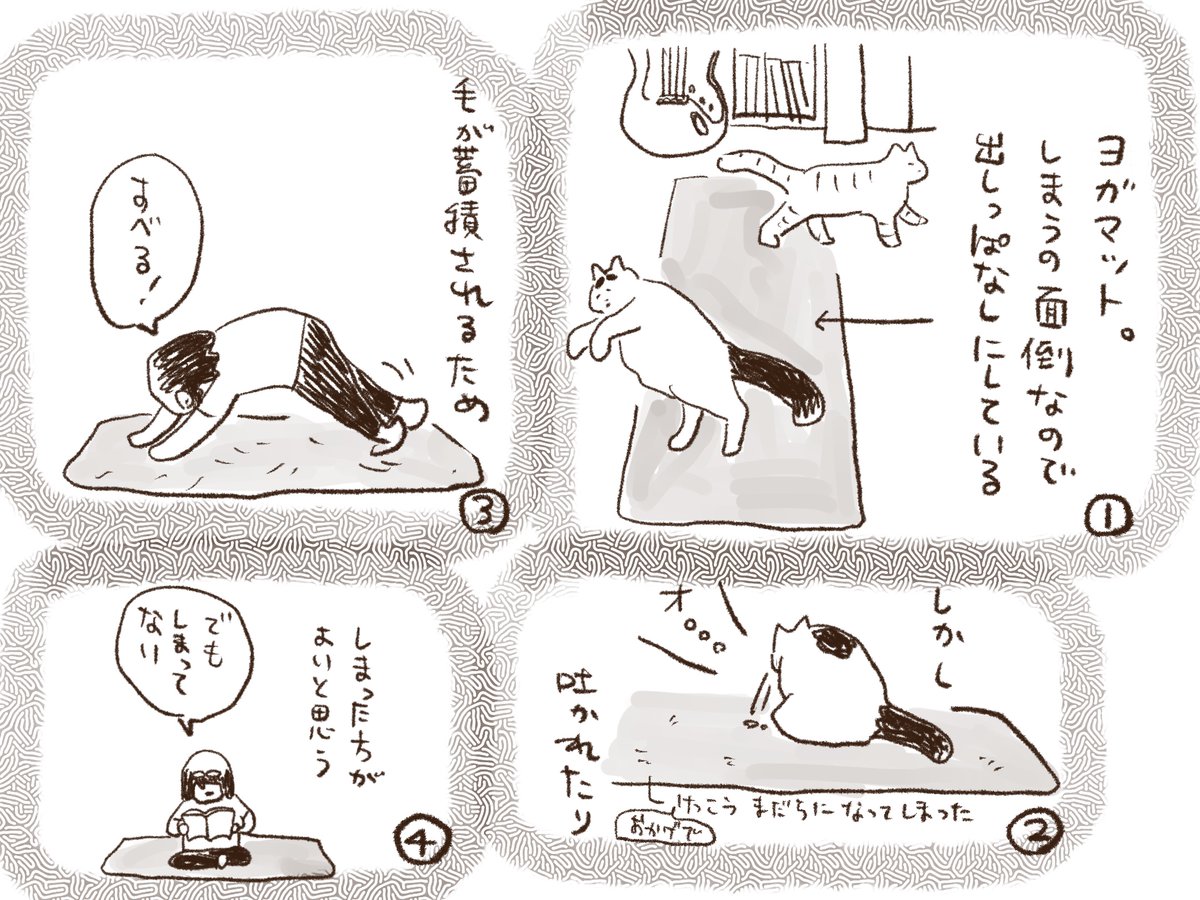 ヨガマット。
しまうの面倒なので
出しっぱなしにしている
①
しかし
オ。。。
吐かれたり
おかげで
けっこう まだらに なってしまった
②
毛が蓄積されるため
すべる!
③
しまった方が
よいと思う
でも
しまって
ない
④